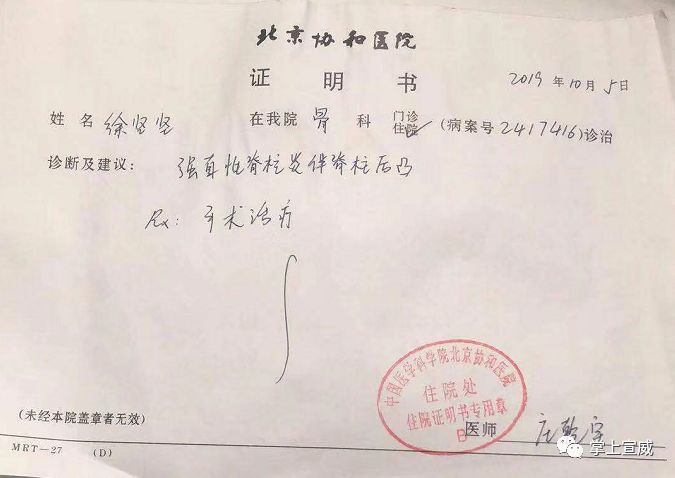 北京协和医院
证明书
2019年10月5日
姓名 徐竖竖 在我院 骨 科 门诊 住院 (病案号2417416)诊治
诊断及建议: 强直性脊柱炎伴脊柱后凸
Rx: 手术治疗
中国医学科学院北京协和医院
住院处
住院证明书专用章
(未经本院盖章者无效)
医师
掌上宣威
MRT—27 (D)